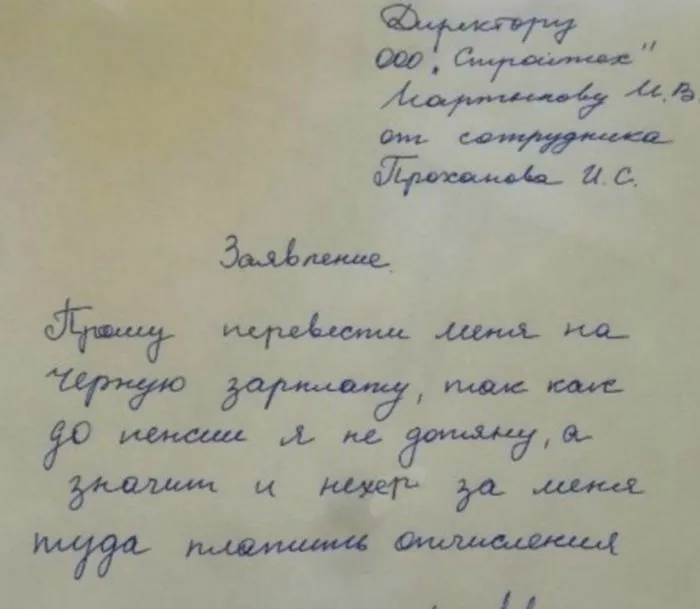 Директору
ООО „Стройтех"
Мартынову И.В
от сотрудника
Проханова И.С.
Заявление.
Прошу перевести меня на
черную зарплату, так как
до пенсии я не дотяну, а
значит и нехер за меня
туда платить отчисления